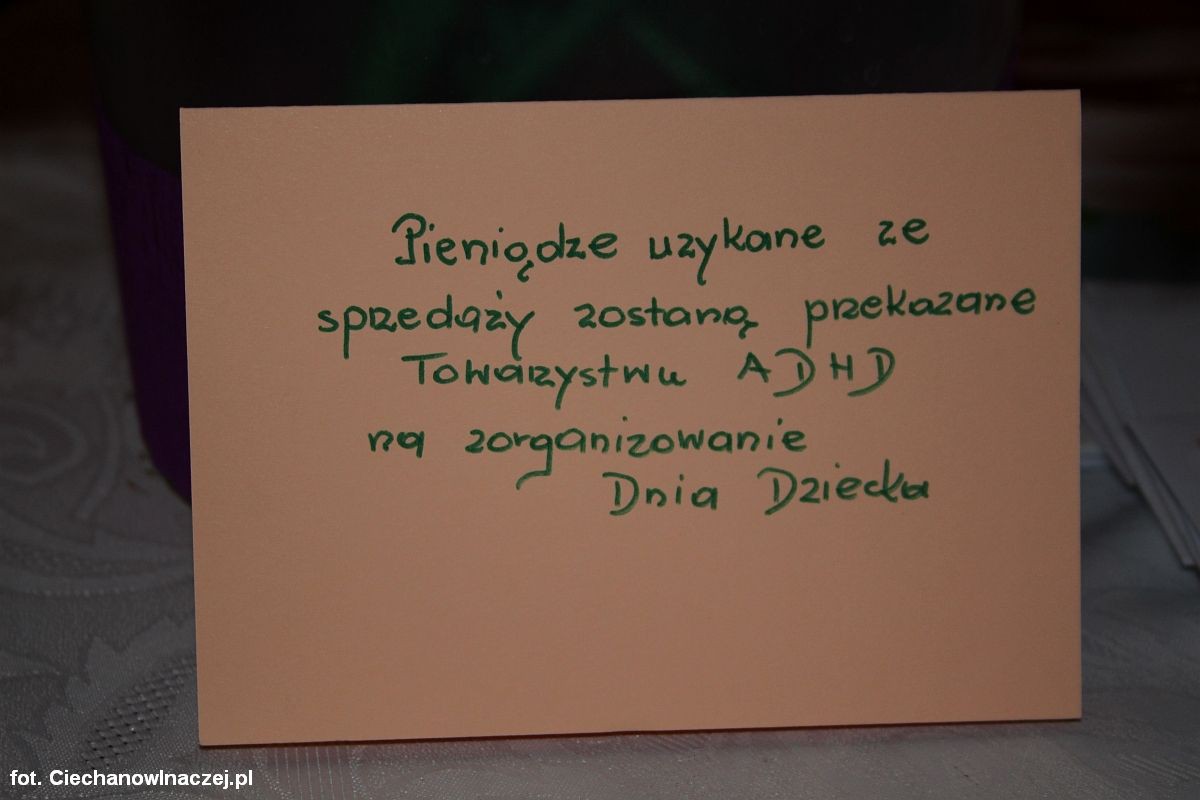 Pieniądze uzykane ze
sprzedaży zostaną przekazane
Towarzystwu ADHD
na zorganizowanie
Dnia Dziecka
fot. CiechanowInaczej.pl